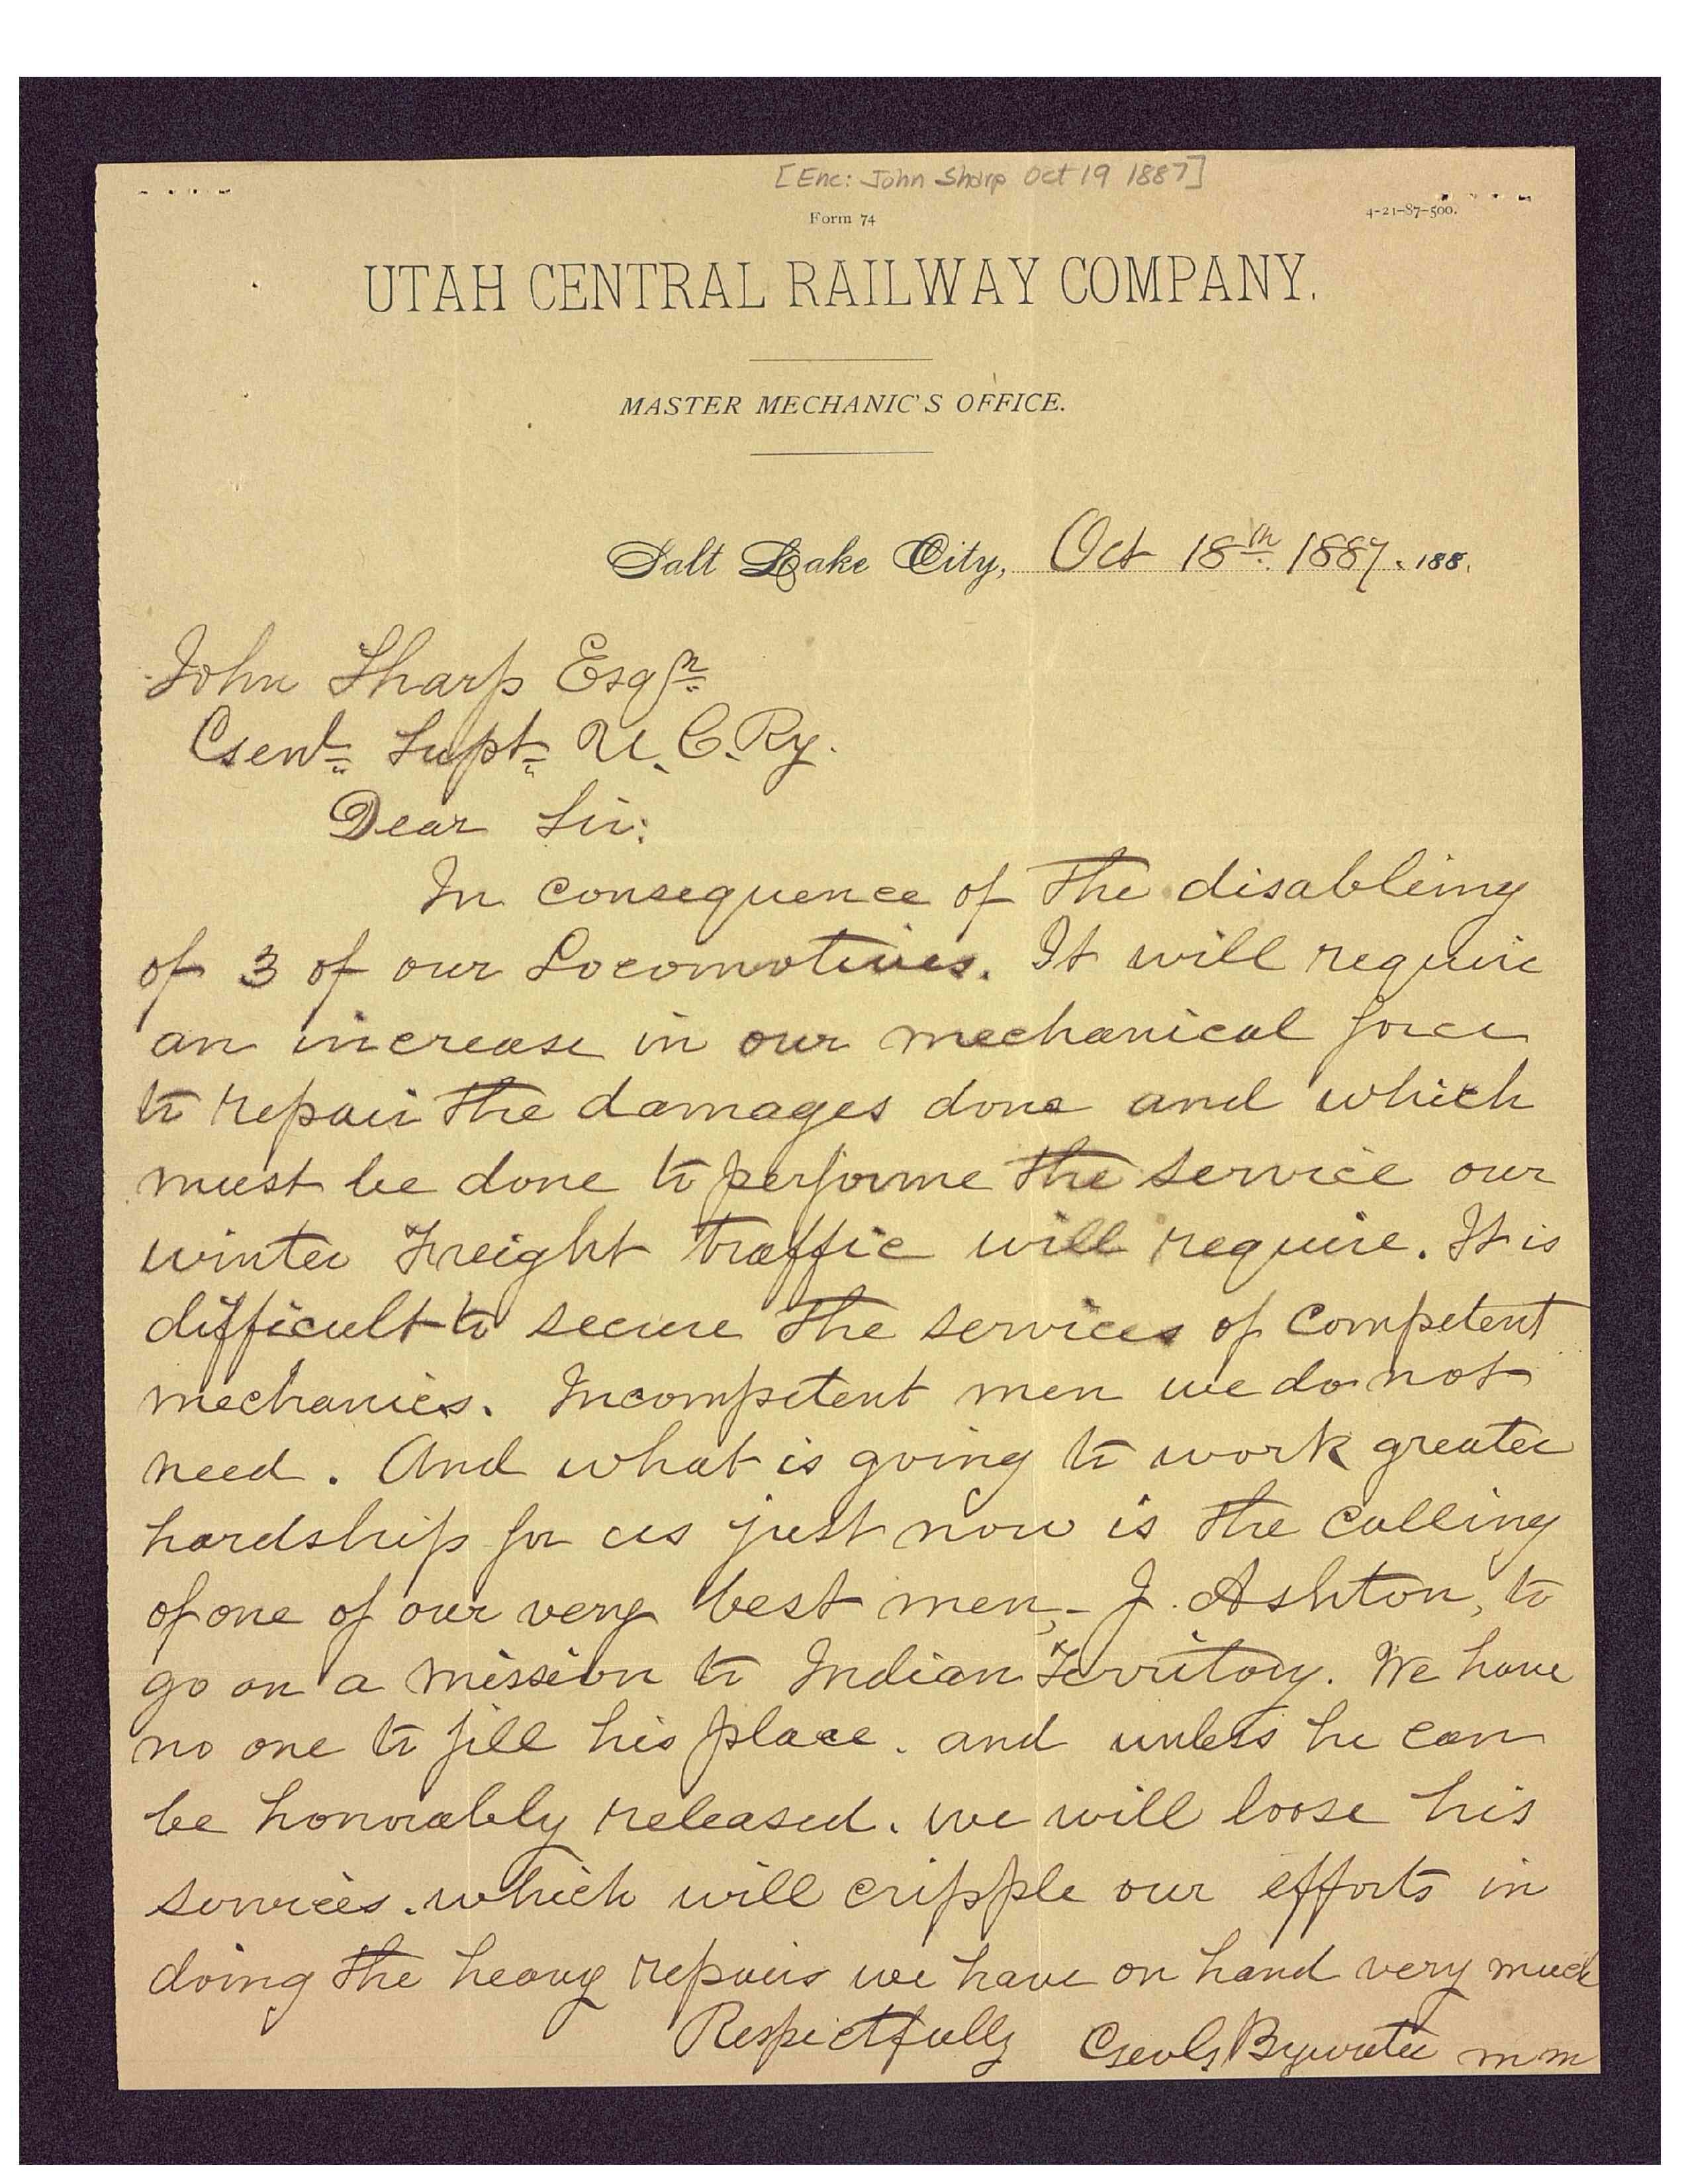 [Enc: John Sharp Oct 19 1887]
Form 74
4-21-87-500.
UTAH CENTRAL RAILWAY COMPANY.
MASTER MECHANIC'S OFFICE.
Salt Lake City, Oct 18th 1887. 188.
John Sharp Esqr
Genl Supt U. C. Ry.
Dear Sir:
In consequence of the disableing
of 3 of our Locomotives. It will require
an increase in our mechanical force
to repair the damages done and which
must be done to performe the service our
winter Freight traffic will require. It is
difficult to secure the services of Competent
mechanics. Incompetent men we do not
need. And what is going to work greater
hardship for us just now is the Calling
of one of our very best men, - J. Ashton, to
go on a mission to Indian Territory. We have
no one to fill his place. and unless he can
be honorably released. we will loose his
services. which will cripple our efforts in
doing the heavy repairs we have on hand very much
Respectfully Bywater M M